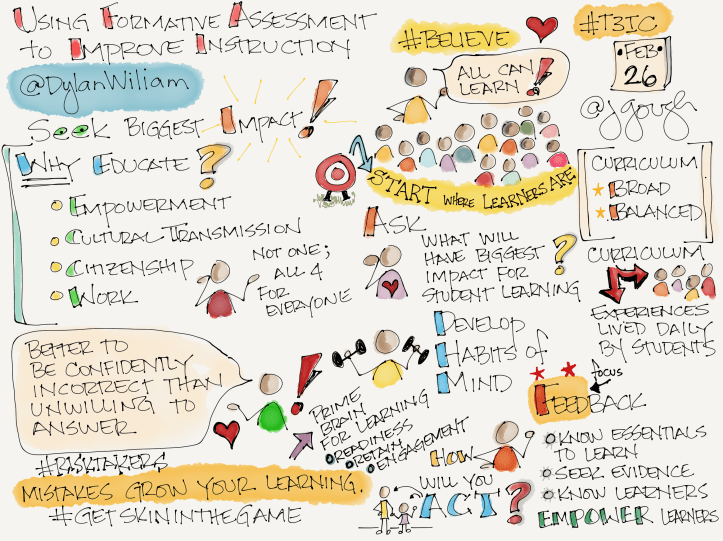 USING FORMATIVE ASSESSMENT
TO IMPROVE INSTRUCTION
@DylanWiliam
SEEK BIGGEST IMPACT!
WHY EDUCATE?
EMPOWERMENT
CULTURAL TRANSMISSION
CITIZENSHIP
WORK
NOT ONE;
ALL 4
FOR
EVERYONE
#BELIEVE
ALL CAN
LEARN!
START WHERE LEARNERS ARE
#T3IC
FEB
26
@jgough
CURRICULUM
BROAD
BALANCED
CURRICULUM
EXPERIENCES
LIVED DAILY
BY STUDENTS
ASK
WHAT WILL
HAVE BIGGEST
IMPACT FOR
STUDENT LEARNING
?
BETTER TO
BE CONFIDENTLY
INCORRECT THAN
UNWILLING TO
ANSWER
!
#RISKTAKERS
MISTAKES GROW YOUR LEARNING.
#GETSKININTHEGAME
PRIME
BRAIN
FOR LEARNING
READINESS
RETAIN
ENGAGEMENT
DEVELOP
HABITS OF
MIND
HOW
WILL YOU
ACT?
focus
FEEDBACK
KNOW ESSENTIALS
TO LEARN
SEEK EVIDENCE
KNOW LEARNERS
EMPOWER LEARNERS